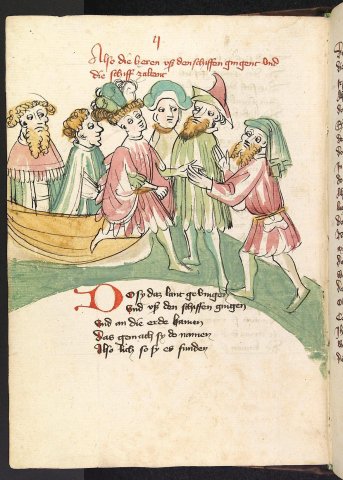 Also die heren uß den schiffen gingent und
die schiff zaltent
Do sy daz lant gevingen
Und uß den schiffen gingen
Und an die erde kamen
Das gemach sy do namen
Also lich so sy es funden